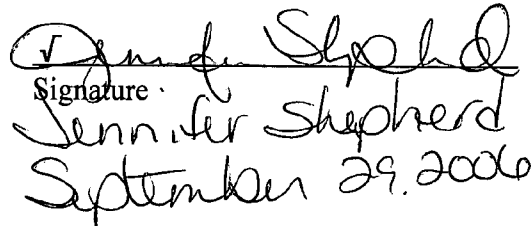 √ Jennifer Shepherd
Signature
Jennifer Shepherd
September 29, 2006